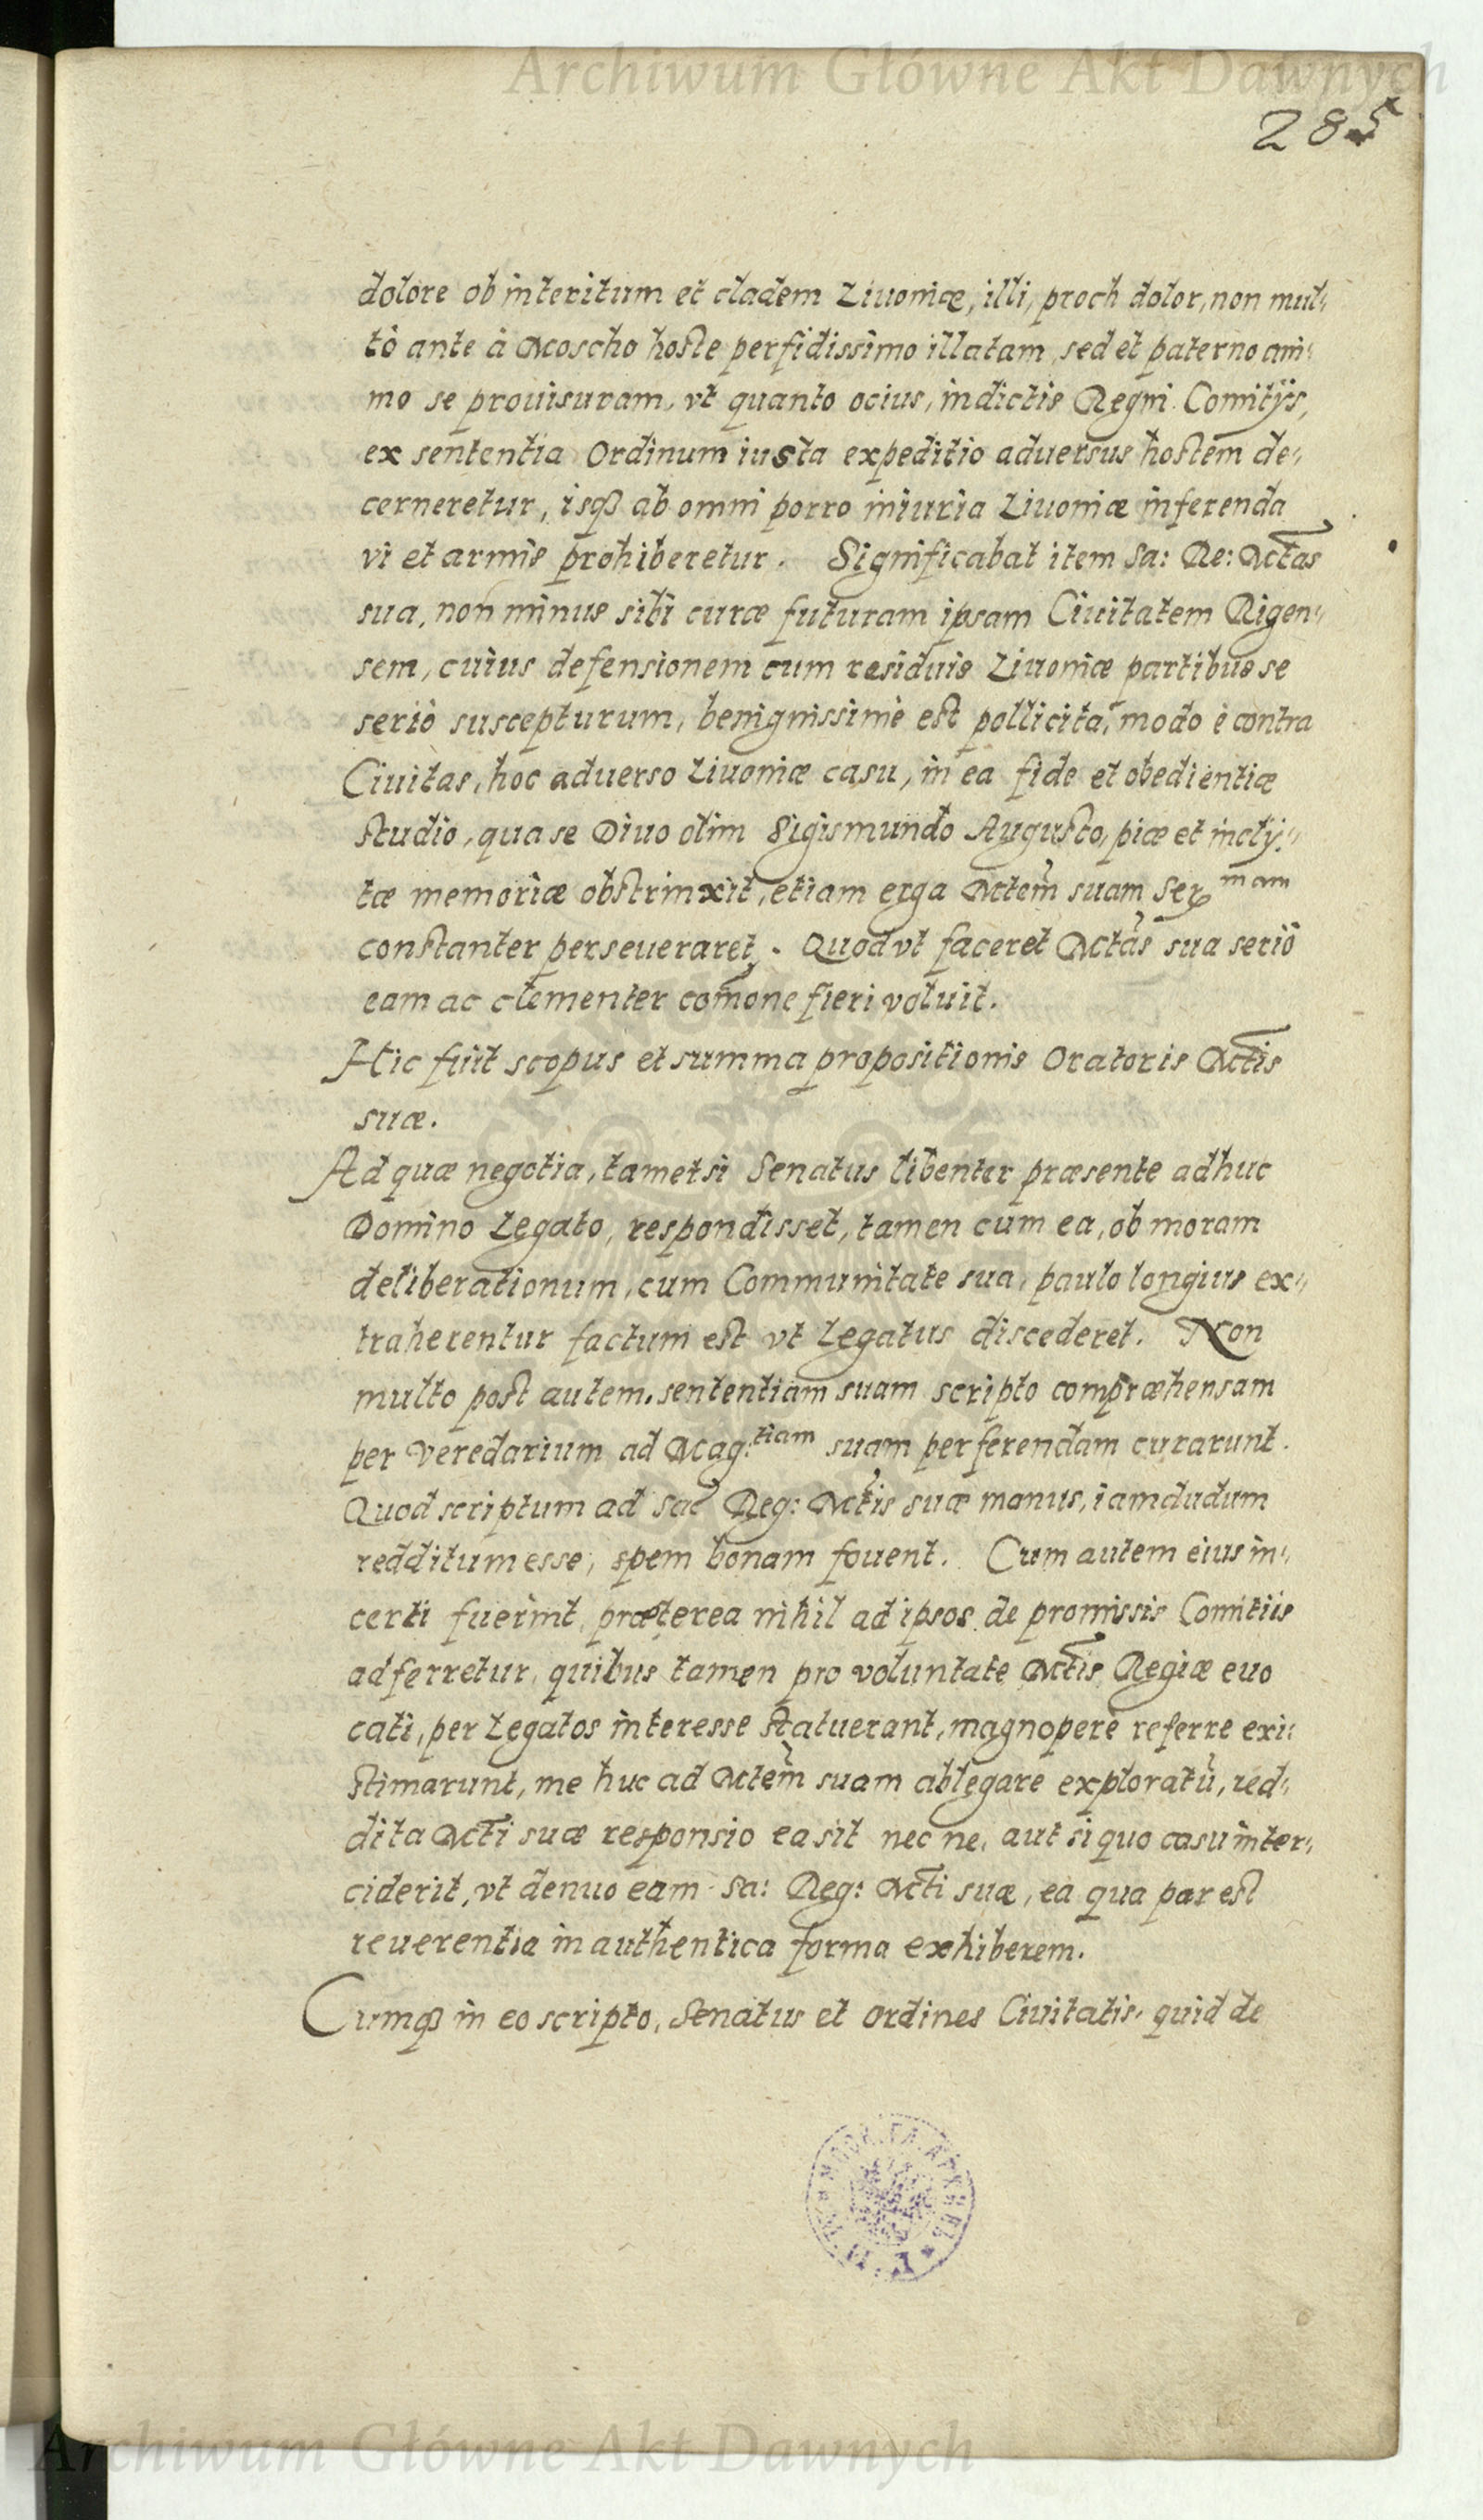 Archiwum Główne Akt Dawnych
285
dolore ob interitum et cladem Liuoniæ, illi, proch dolor, non mul-
tò ante à Moscho hoste perfidissimo illatam, sed et paterno ani-
mo se prouisuram, vt quanto ocius, indictis Regni Comitijs,
ex sententia Ordinum iusta expeditio aduersus hostem de-
cerneretur, isq3 ab omni porro iniuria Liuoniæ inferenda
vi et armis prohiberetur. Significabat item Sa: Re: Mtas
sua, non minus sibi curæ futuram ipsam Ciuitatem Rigen-
sem, cuius defensionem cum residuis Liuoniæ partibus se
seriò suscepturum, benignissimè est pollicita, modo è contra
Ciuitas, hoc aduerso Liuoniæ casu, in ea fide et obedientiæ
studio, qua se Diuo olim Sigismundo Augusto, piæ et incly-
tæ memoriæ obstrinxit, etiam erga Mtem suam Sermam
constanter perseueraret. Quod vt faceret Mtas sua seriò
eam ac clementer com̃one fieri voluit.
Hic fuit scopus et summa propositionis Oratoris Mtis
suæ.
Ad quæ negotia, tametsi Senatus libenter præsente adhuc
Domino Legato, respondisset, tamen cum ea, ob moram
deliberationum, cum Communitate sua, paulo longius ex-
traherentur factum est vt Legatus discederet. Non
multo post autem, sententiam suam scripto compræhensam
per Veredarium ad Mag:tiam suam perferendam curarunt.
Quod scriptum ad Sac Reg: Mtis suæ manus, iamdudum
redditum esse, spem bonam fouent. Cum autem eius in-
certi fuerint, præterea nihil ad ipsos de promissis Comitiis
adferretur, quibus tamen pro voluntate Mtis Regiæ euo
cati, per Legatos interesse statuerant, magnoperè referre exi-
stimarunt, me huc ad Mtem suam ablegare exploratũ, red-
dita Mti suæ responsio ea sit nec ne, aut si quo casu inter-
ciderit, vt denuo eam Sa: Reg: Mti suæ, eà qua par est
reuerentia in authentica forma exhiberem.
Cumq3 in eo scripto, Senatus et Ordines Ciuitatis, quid de
Archiwum Główne Akt Dawnych